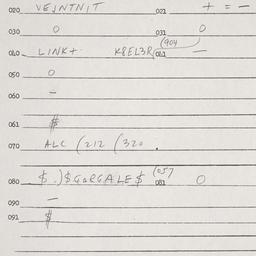 020 VEJNTNIT 021 + = -
030 0 031 0
040 LINK+ K8EL3R (904 041 -
050 0
060 -
061 $
070 ALC (212 (320 .
080 $.)$GARGALE$ (057 081 0
090 -
091 $